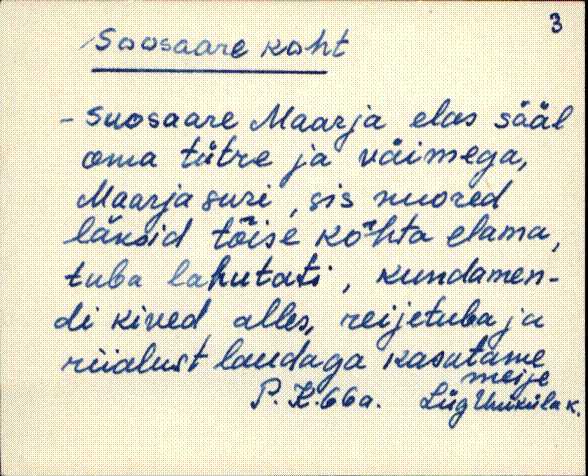 3
Soosaare koht
- Suosaare Maarja elas sääl
oma tütre ja väimega,
Maarja suri, sis nuored
läksid tõise kohta elama,
tuba lahutati, kundamen-
di kived alles, reijetuba ja
riialust laudaga kasutame
meije
P. K. 66a. Lüg Uuküla k.